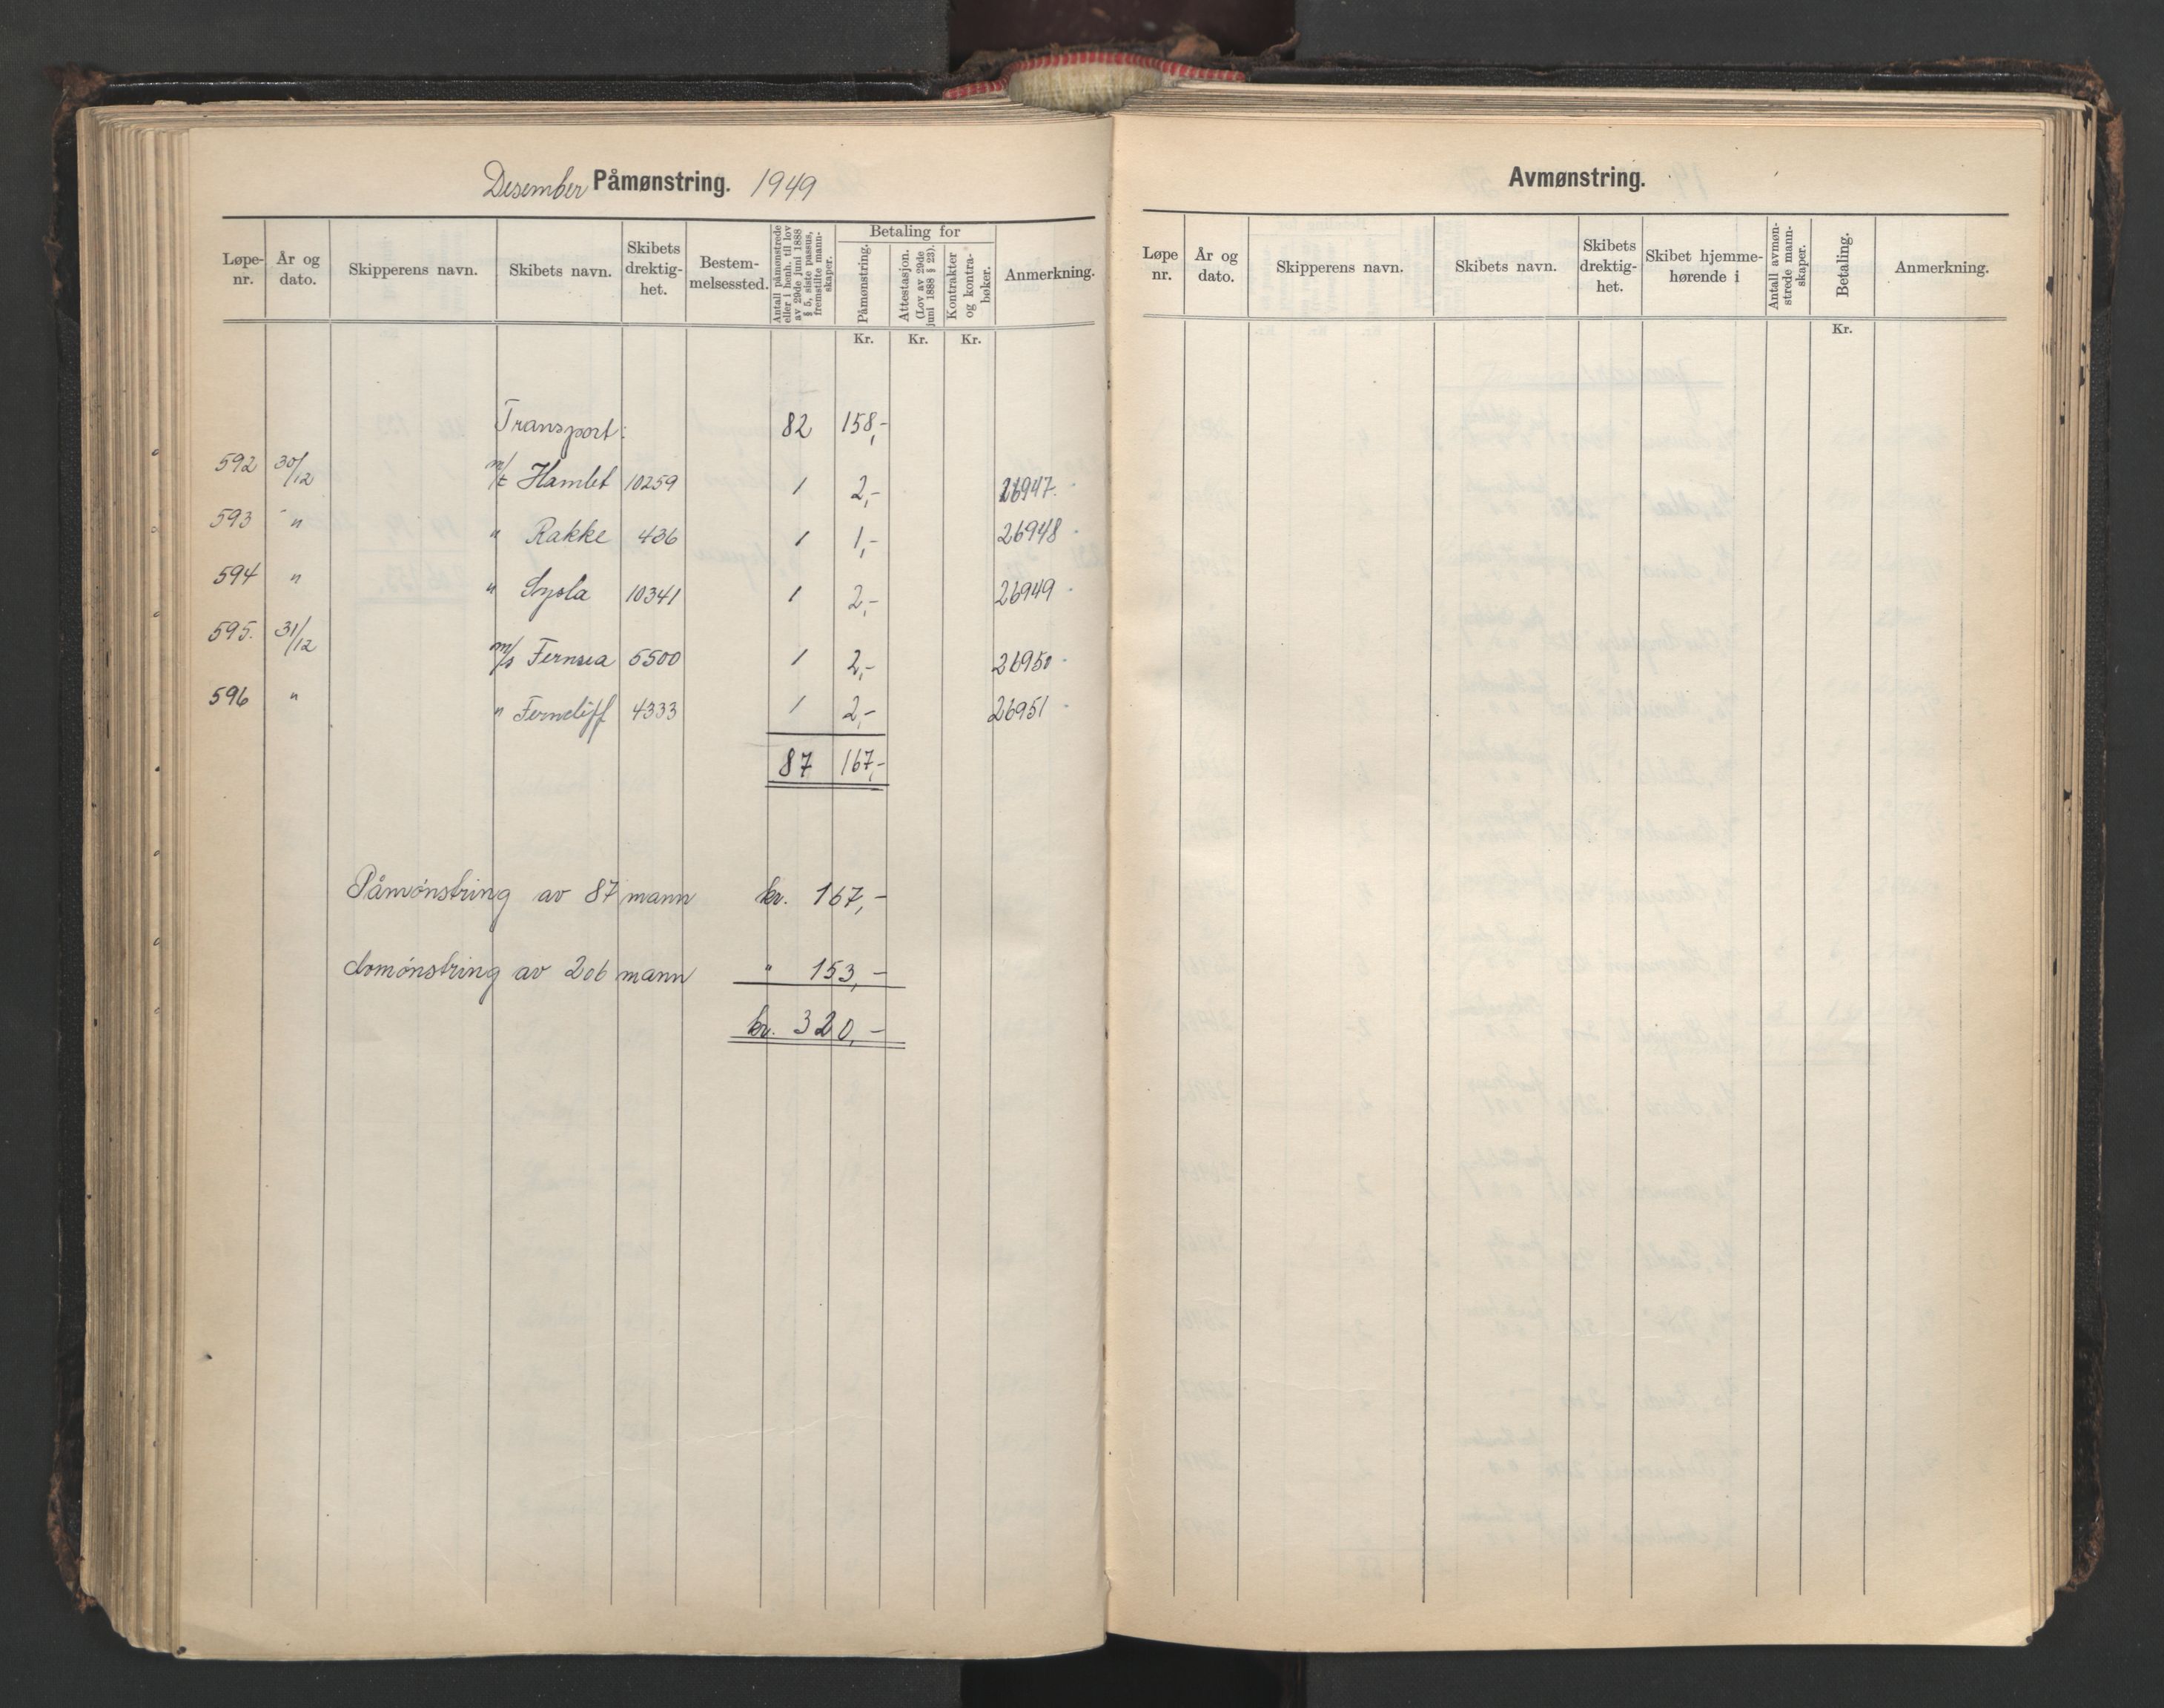 Desember Påmønstring. 1949
Løpe-nr. År og dato. Skipperens navn. Skibets navn. Skibets drektig-het. Bestem-melsessted. Antall påmønstrede eller i henh. til lov av 29de juni 1888 § 5, siste passus, fremstilte mann-skaper. Betaling for Påmønstring. Attestasjon. (Lov av 29de juni 1888 § 23). Kontrakter og kontra-bøker. Anmerkning.
Kr. Kr. Kr.
Transport: 82 158,-
592 30/12 m/t Hamlet 10259 1 2,- 26947.
593 " " Rakke 436 1 1,- 26948
594 " " Sysla 10341 1 2,- 26949
595. 31/12 m/s Fernsea 5500 1 2,- 26950
596 " " Ferncliff 4333 1 2,- 26951
87 167,-
Påmønstring av 87 mann kr. 167,-
Avmønstring av 206 mann " 153,-
kr. 320,-
Avmønstring.
Løpe nr. År og dato. Skipperens navn. Skibets navn. Skibets drektig-het. Skibet hjemme-hørende i Antall avmøn-strede mann-skaper. Betaling. Anmerkning.
Kr.